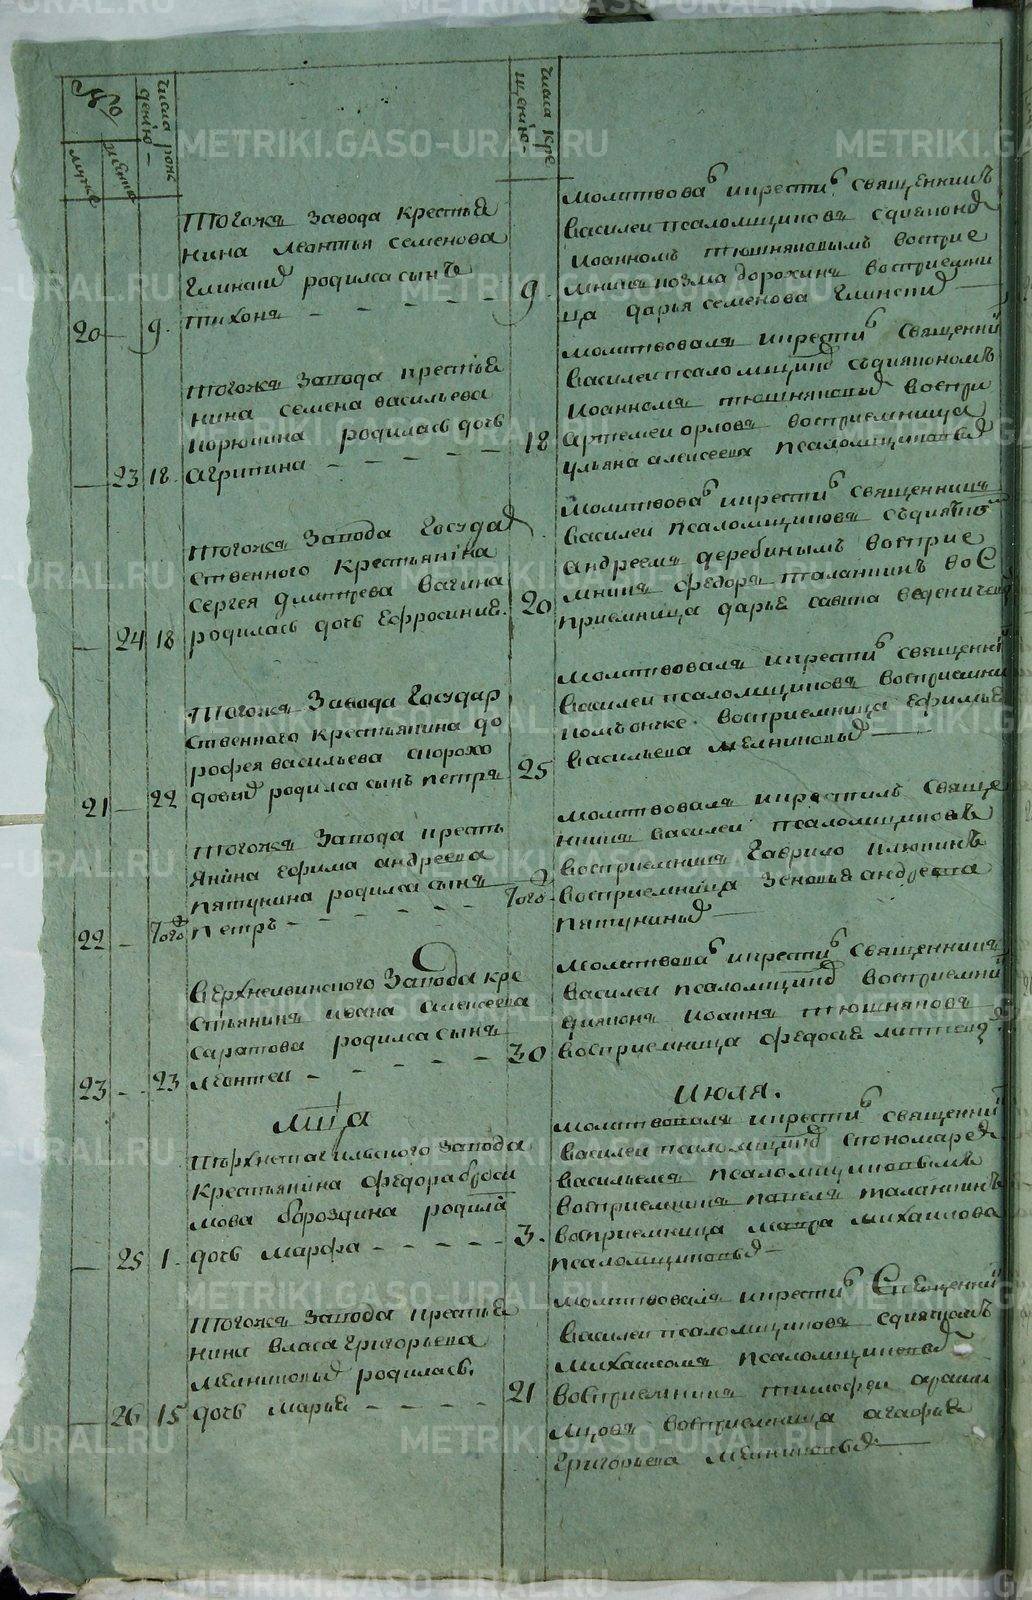 №
мужск
женска
числа рож
денiю
числа кре
щенiю
METRIKI.GASO-URAL.RU
Тогожъ завода крестья
нина Леонтья Семенова
Глинских родилса сынъ
20 — 9. Тихонъ
9. Молитвовав и крестив священникъ
Василеи Псаломщиковъ с дияконо
Иоанномъ Тюшняковымъ восприе
мникъ Козма Дорохинъ восприемни
ца Дарья Семенова Глинских
Тогожъ завода крестья
нина Семена Васильева
Корюкина родилась дочь
— 23 18. Агрипина
18 Молитвовалъ и крестив священни
Василеи Псаломщик съ дияконом
Иоанномъ Тюшняковых воспри
Артемеи Орловъ восприемница
Ульяна Алексеева Псаломщиковых
Тогожъ завода Государ
ственного крестьянiна
Сергея Дмитриева Вагина
— 24 18 родилась дочь Ефросиния.
20 Молитвовав и крестив священникъ
Василеи Псаломщиковъ съ дияко
Андреемъ Деребинымъ восприе
мникъ Федоръ Таланкинъ вос
приемница Дарья Савина
Тогожъ завода Государ
ственного крестьянина До
рофея Васильева Скорохо
21 — 22 довых родилса сынъ Петръ
25 Молитвовалъ и крестив священнi
Василеи Псаломщиковъ восприемни
восприемница Ефимья
Васильева Мелниковых
Тогожъ завода кресть
янина Ефима Андреева
Пятунина родилса сынъ
22 — Того Петръ
Того Молитвовалъ и крестилъ свяще
нникъ Василеи Псаломщиковъ
восприемникъ Гаврило Клюкинъ
восприемница Зеновья Андреева
Пятуниных
Верхнеивинского завода кре
стьянинъ Ивана Алексеева
Саратова родилса сынъ
23 — 23 Леонтеи
30 Молитвовав и крестив священникъ
Василеи Псаломщик восприемни
дияконъ Иоаннъ Тюшняковъ
восприемница Федосья
Мца Июля.
Верхнетагильского завода
крестьянина Федора Амброси
мова Бороздина родила
— 25 1. дочь Марфа
3. Молитвовалъ и крестив священни
Василеи Псаломщик с пономаре
Васильемъ Псаломщиковымъ
восприемникъ Павелъ Таланкинъ
восприемница Мавра Михаилова
Псаломщиковых
Тогожъ завода крестья
нина Власа Григорьева
Мелниковых родилась
— 26 15 дочь Марья
21 Молитвовалъ и крестив Священни
Василеи Псаломщиковъ с дияком
Михаиломъ Псаломщиковых
восприемникъ Тимофеи
восприемница Агафья
Григорьева Мелниковых